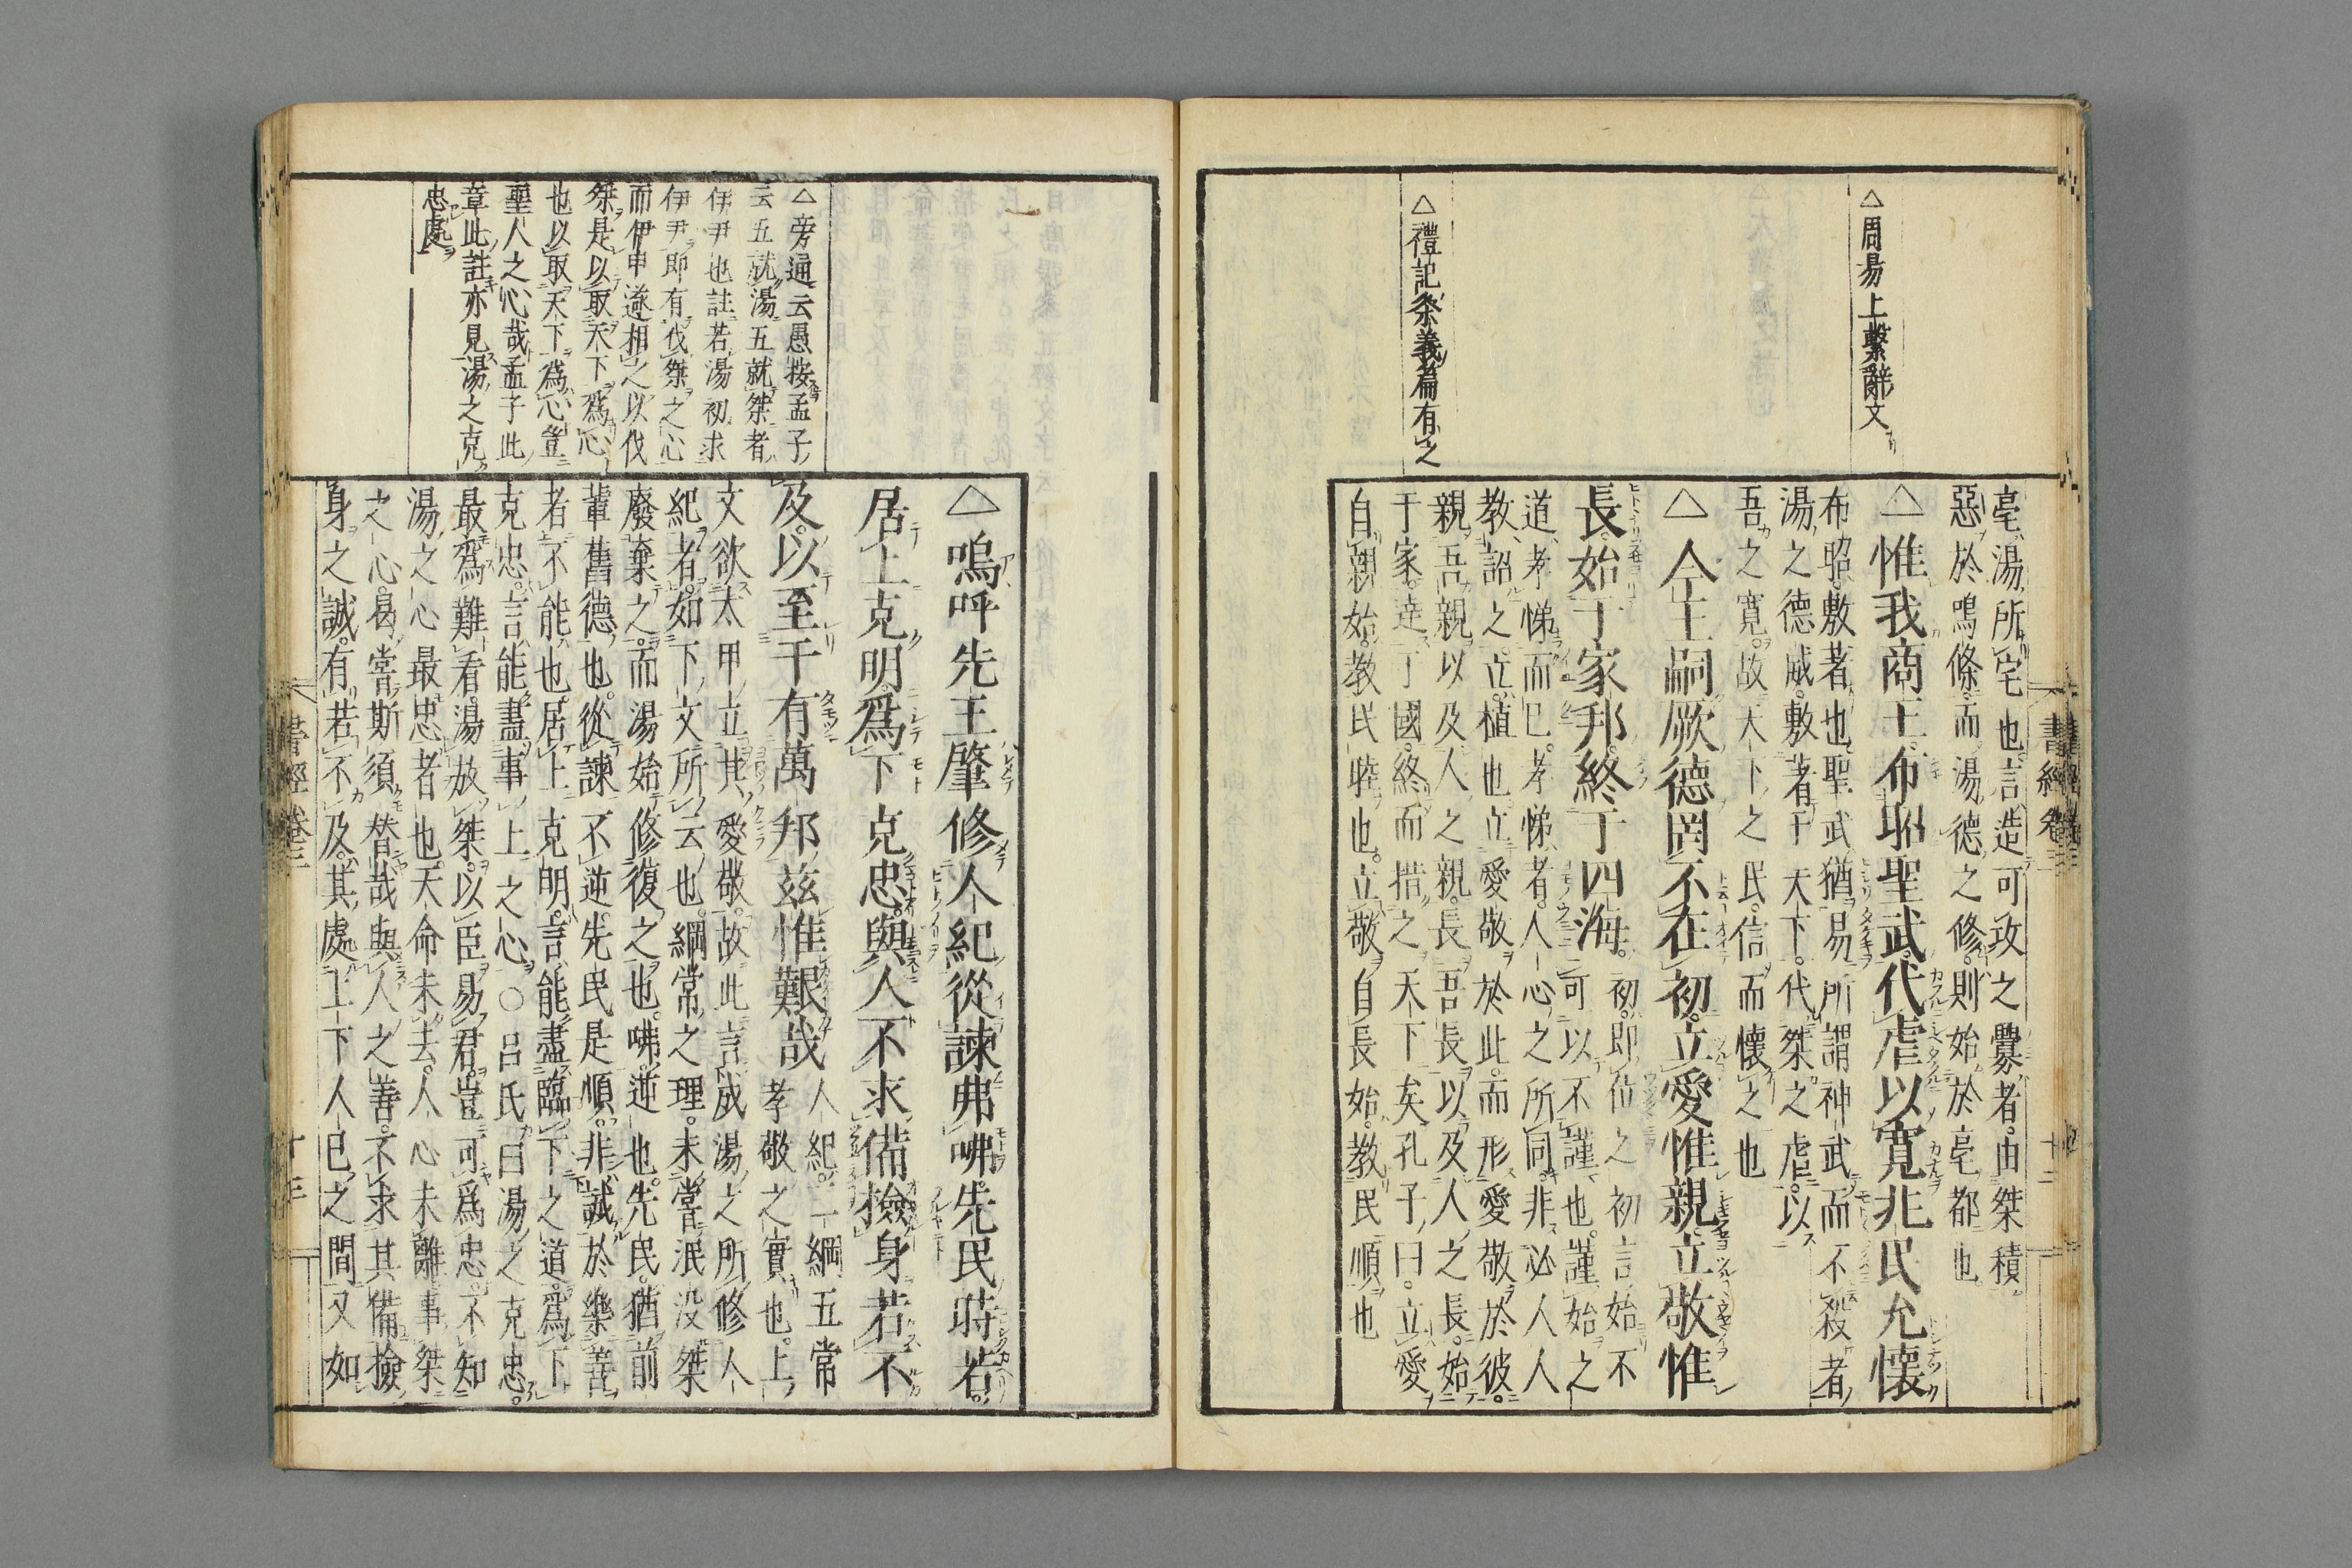 △周易上繫辭文
△禮記祭義篇有之
亳湯所宅也言造可攻之釁者由桀積
惡於鳴條而湯德之修則始於亳都也
△惟我商王布昭聖武代虐以寛兆民允懷
布昭敷著也聖武猶易所謂神武而不殺者
湯之德威敷著于天下代桀之虐以
吾之寛故天下之民信而懷之也
△今王嗣厥德罔不在初立愛惟親立敬惟
長始于家邦終于四海
初即位之初言始不
可以不謹也謹始之
道孝悌而已孝悌者人心之所同非必人人
教詔之立植也立愛敬於此而形愛敬於彼
親吾親以及人之親長吾長以及人之長始
于家達于國終而措之天下矣孔子曰立愛
自親始教民睦也立敬自長始教民順也
書經卷三
十三
△旁通云愚按孟子
云五就湯五就桀者
伊尹也註若湯初求
伊尹即有伐桀之心
而伊尹遂相之以伐
桀是以取天下爲心
也以取天下爲心豈
聖人之心哉孟子此
章此註亦見湯之克
忠處
△嗚呼先王肇修人紀從諫弗咈先民時若
居上克明爲下克忠與人不求備撿身若不
及以至于有萬邦茲惟艱哉
人紀三綱五常
孝敬之實也上
文欲太甲立其愛敬故此言成湯之所修人
紀者如下文所云也綱常之理未嘗泯没桀
廢棄之而湯始修復之也咈逆也先民猶前
輩舊德也從諫不逆先民是順非誠於樂善
者不能也居上克明言能盡臨下之道爲下
克忠言能盡事上之心○呂氏曰湯之克忠
最爲難看湯放桀以臣易君豈可爲忠不知
湯之心最忠者也天命未去人心未離事桀
之心曷嘗斯須替哉與人之善不求其備撿
身之誠有若不及其處上下人己之間又如
書經卷三
十三